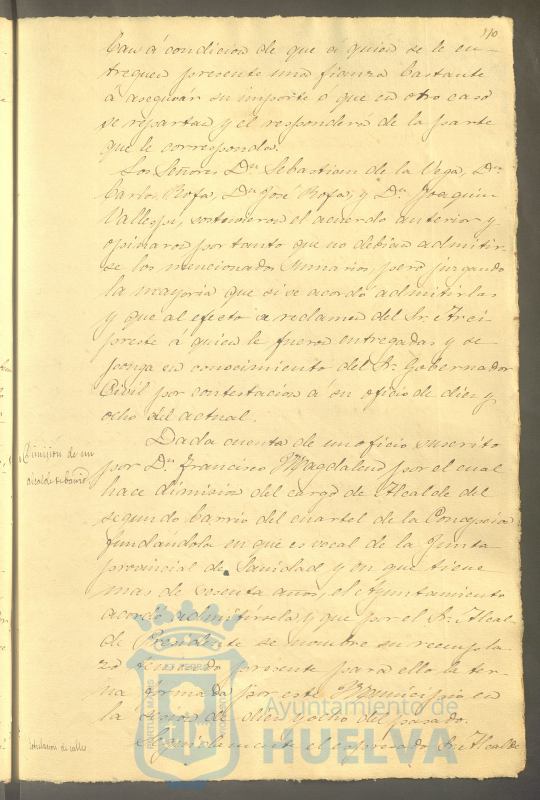 110
ban á condicion de que á quien se le en-
treguen presente una fianza bastante
á asegurar su importe ó que en otro caso
se repartan y él responderá de la parte
que le corresponda.
Los Señores Dn. Sebastian de la Vega, Dn.
Carlos Rofa, Dn. José Rofa, y Dn. Joaquin
Vallespi, sostuvieron el acuerdo anterior y
opinaron por tanto que no debian admitir-
se los mencionados sumarios, pero juzgando
la mayoria que si se acordó admitirlas
y que al efecto se reclamen del Sr. Arci
preste á quien le fueron entregadas y se
ponga en conocimiento del Sr. Gobernador
Civil por contestacion á su oficio de diez y
ocho del actual.
Dimisión de un
alcalde de barrio
Dada cuenta de un oficio suscrito
por Dn. Francisco Magdalena por el cual
hace dimision del cargo de Alcalde del
segundo barrio del cuartel de la Concepcion
fundándola en que es vocal de la Junta
provincial de Sanidad y en que tiene
mas de sesenta años, el Ayuntamiento
acordó admitírsela y que por el Sr. Alcal-
de Presidente se nombre su reempla-
zo teniendo presente para ello la ter-
na formada por este Municipio en
la sesion de diez y ocho del pasado.
rotulacion de calles
Seguidamente el espresado Sr. Alcalde
Ayuntamiento de
HUELVA